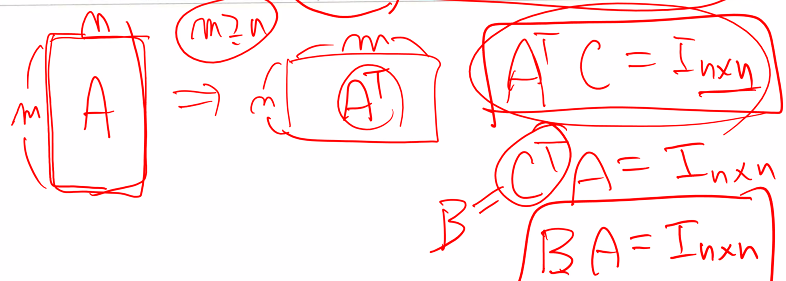 n
m ≥ n
m
A
⇒
m
n
A^T
A^T C = I_{n×n}
C^T A = I_{n×n}
B =
B A = I_{n×n}